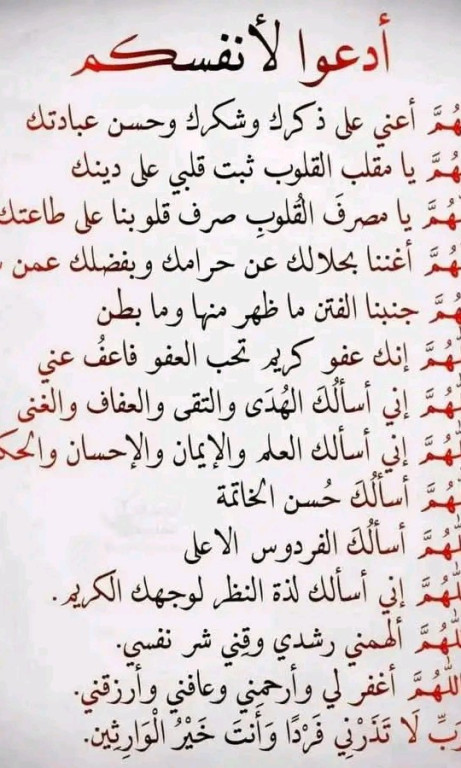 أدعوا لأنفسكم
اللهُمَّ أعني على ذكرك وشكرك وحسن عبادتك
اللهُمَّ يا مقلب القلوب ثبت قلبي على دينك
اللهُمَّ يا مصرفَ القُلوبِ صرف قلوبنا على طاعتك
اللهُمَّ أغننا بحلالك عن حرامك وبفضلك عمن
اللهُمَّ جنبنا الفتن ما ظهر منها وما بطن
اللهُمَّ إنك عفو كريم تحب العفو فاعفُ عني
اللهُمَّ إني أسألُكَ الهُدَى والتقى والعفاف والغنى
اللهُمَّ إني أسألك العلم والإيمان والإحسان
اللهُمَّ أسألُكَ حُسن الخاتمة
اللهُمَّ أسألُكَ الفردوس الاعلى
اللهُمَّ إني أسألك لذة النظر لوجهك الكريم.
اللهُمَّ ألهمني رشدي وقِني شر نفسي.
اللهُمَّ أغفر لي وأرحمني وعافني وأرزقني.
رَبِّ لَا تَذَرْنِي فَرْدًا وَأَنتَ خَيْرُ الْوَارِثِين.